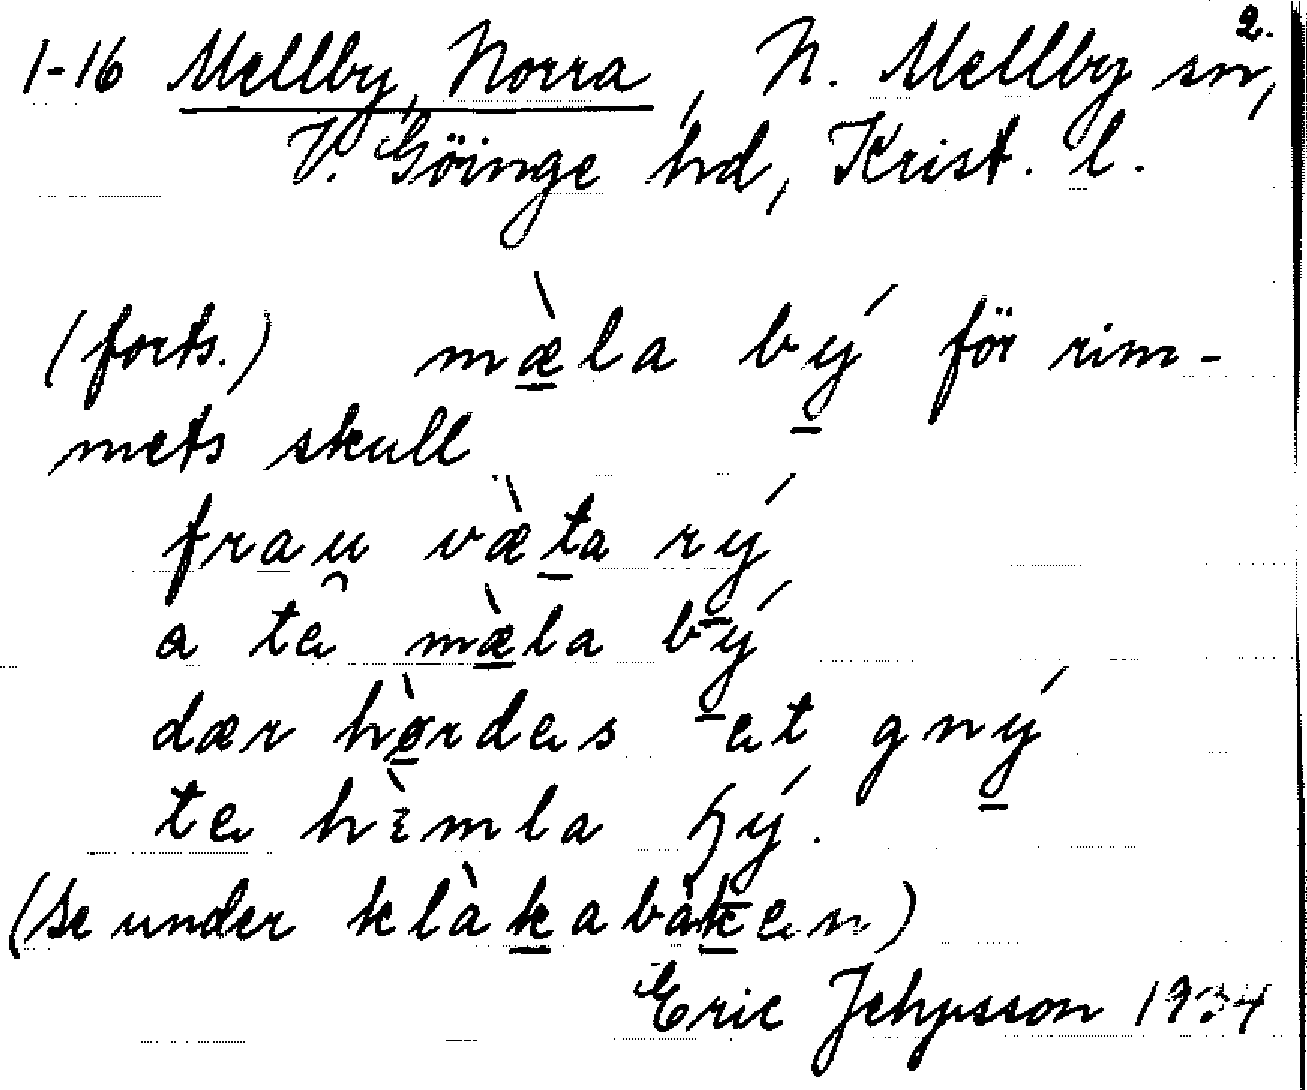 2.
1-16 Mellby, Norra, N. Mellby sn,
V. Göinge hd, Krist. l.
(forts.) mæ̀la bý för rim-
mets skull
frau væ̀ta rý
a te mæ̀la bý
dær hø̀rdes et gný
te hìmla ský.
(se under klàkabàken)
Eric Jehpsson 1934